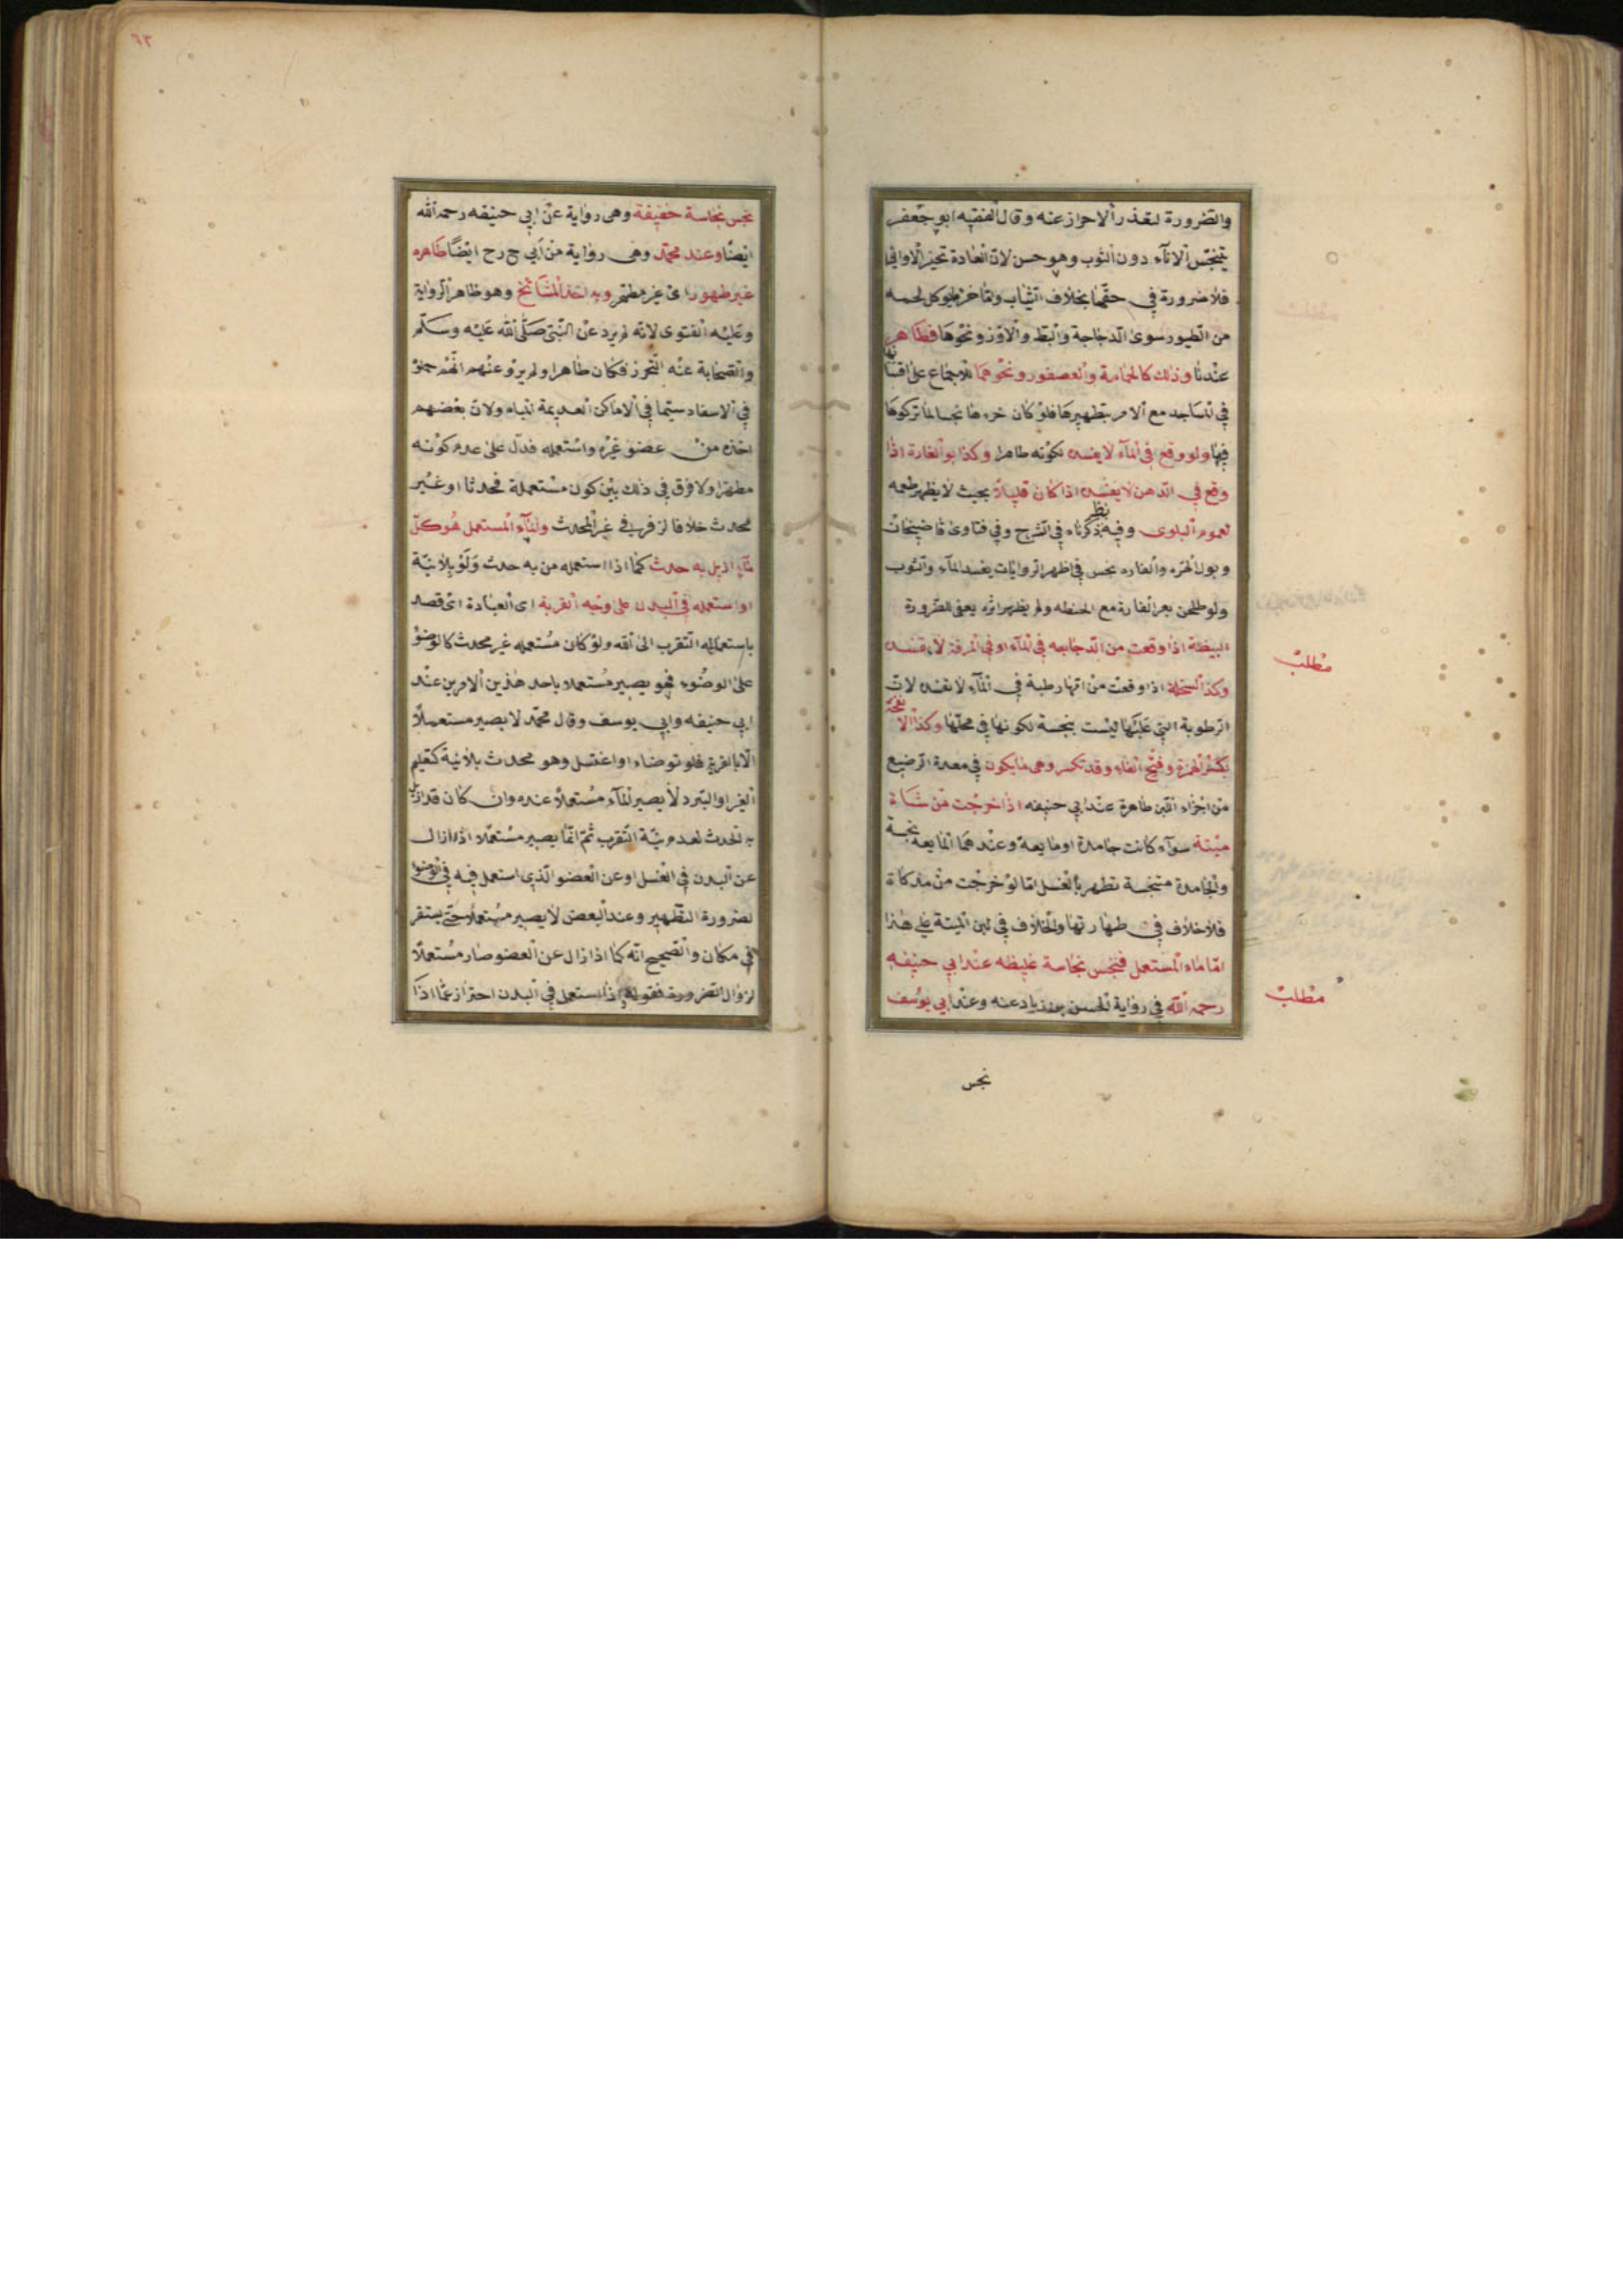 والضرورة لتعذر الاحتراز عنه وقال الفقيه ابو جعفر
يتنجس الاناء دون الثوب وهو حسن لان العادة تخمير الاواني
فلا ضرورة في حقها بخلاف الثياب واما خرء ما يوكل لحمه
من الطيور سوى الدجاجة والبط والاوز ونحوها فطاهر
عندنا وذلك كالحمامة والعصفور ونحوهما للاجماع على اقتنائها
في المساجد مع الامر بتطهيرها فلو كان خرءها نجسا لما تركوها
فيها ولو وقع في الماء لا يفسده لكونه طاهرا وكذا بعر الفارة اذا
وقع في الدهن لا يفسده اذا كان قليلا بحيث لا يظهر طعمه
لعموم البلوى وفيه نظر ذكرناه في الشرح وفي فتاوى قاضيخان
وبول الهرة والفاره نجس في اظهر الروايات يفسد الماء والثوب
ولو طحن بعر الفارة مع الحنطه ولم يظهر اثره يعفى للضرورة
البيضة اذا وقعت من الدجاجه في الماء او في المرقة لا تفسده
وكذا السخلة اذا وقعت من امها رطبة في الماء لا تفسده لان
الرطوبة التي عليها ليست بنجسة لكونها في محلها وكذا الانفحة
بكسر الهمزة وفتح الفاء وقد تكسر وهى ما يكون في معدة الرضيع
من اجزاء اللبن طاهرة عند ابي حنيفه اذا خرجت من شاة
ميتة سواء كانت جامدة او مايعة وعندهما المايعة نجسة
والجامدة متنجسة تطهر بالغسل اما لو خرجت من مذكاة
فلا خلاف في طهارتها والخلاف في لبن الميتة على هذا
اما ماء المستعمل فنجس نجاسة غليظه عند ابي حنيفه
رحمه الله في رواية الحسن بن زياد عنه وعند ابي يوسف
نجس
مطلب
مطلب
٦٣
نجس نجاسة خفيفة وهى رواية عن ابي حنيفه رحمه الله
ايضا وعند محمد وهى رواية من ابي ح رح ايضا طاهره
غير طهور اى غير مطهر وبه اخذ المشائخ وهو ظاهر الرواية
وعليه الفتوى لانه لم يرد عن النبي صلى الله عليه وسلم
والصحابة عنه التحرز فكان طاهرا ولم يرو عنهم انهم حملوه
في الاسفار سيما في الاماكن العديمة المياه ولان بعضهم
اخذه من عضو غيره واستعمله فدل على عدم كونه
مطهرا ولا فرق في ذلك بين كون مستعملة محدثا او غير
محدث خلافا لزفر في غير المحدث والماء المستعمل هو كل
ماء ازيل به حدث كما اذا استعمله من به حدث ولو بلا نية
او استعمله في البدن على وجه القربة اى العبادة اى قصد
باستعماله التقرب الى الله ولو كان مستعمله غير محدث كالوضوء
على الوضوء فهو يصير مستعملا باحد هذين الامرين عند
ابي حنيفه وابي يوسف وقال محمد لا يصير مستعملا
الا بالقربة فلو توضاء او اغتسل وهو محدث بلا نية كتعليم
الغير او التبرد لا يصير الماء مستعملا عنده وان كان قد ازيل
به الحدث لعدم نية التقرب ثم انما يصير مستعملا اذا زال
عن البدن في الغسل او عن العضو الذى استعمل فيه في الوضوء
لضرورة التطهير وعند البعض لا يصير مستعملا حتى يستقر
في مكان والصحيح انه كما اذا زال عن العضو صار مستعملا
لزوال الضرورة فقوله اذا استعمل في البدن احتراز عما اذا